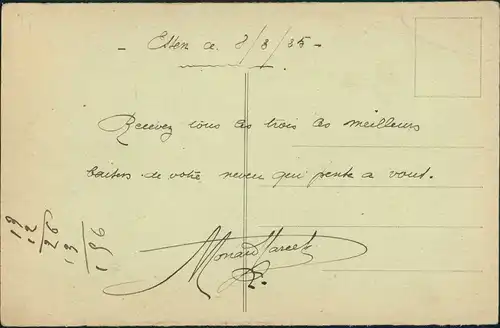 - Essen le 8/8/25 -
Recevez tous les trois les meilleurs
baisers de votre neveu qui pense a vous.
Monau Marcel
19
12
26
13
196